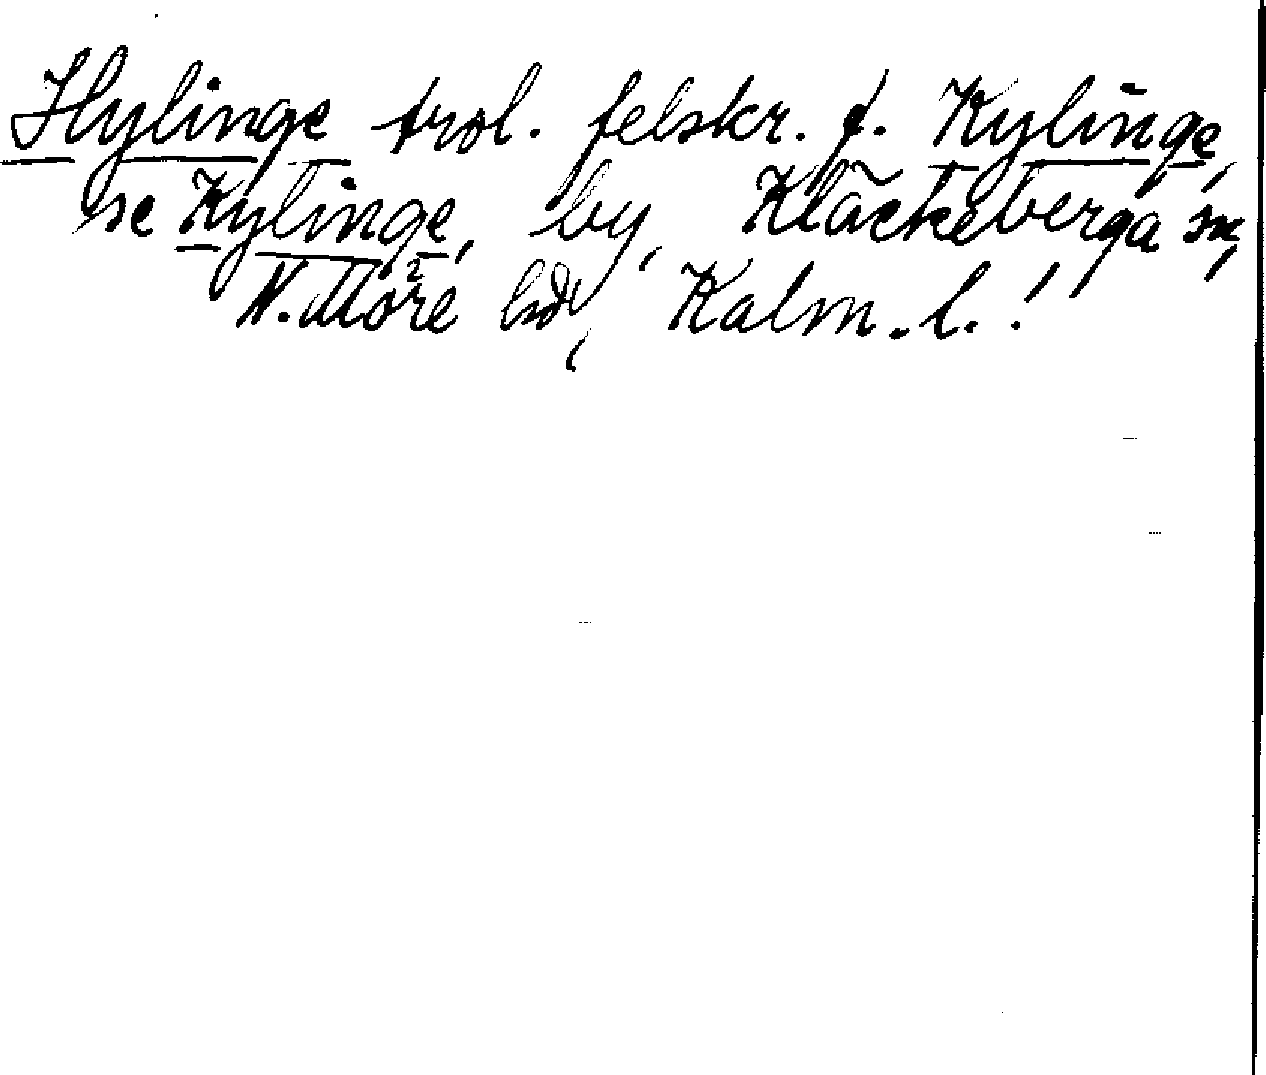 Hylinge trol. felskr. f. Kylinge,
se Kylinge, by, Kläckeberga sn,
N. Möre hd, Kalm. l.!